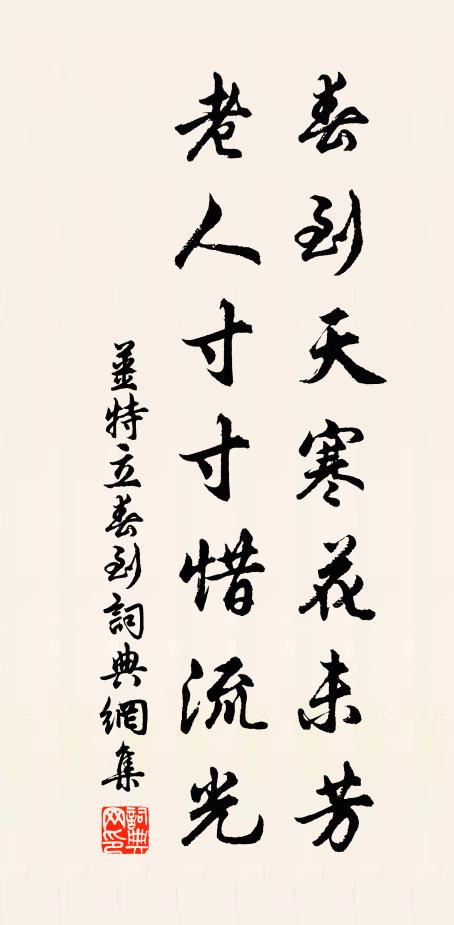 春到天寒花未芳
老人寸寸惜流光
姜特立春到詞典網集
詞典網印